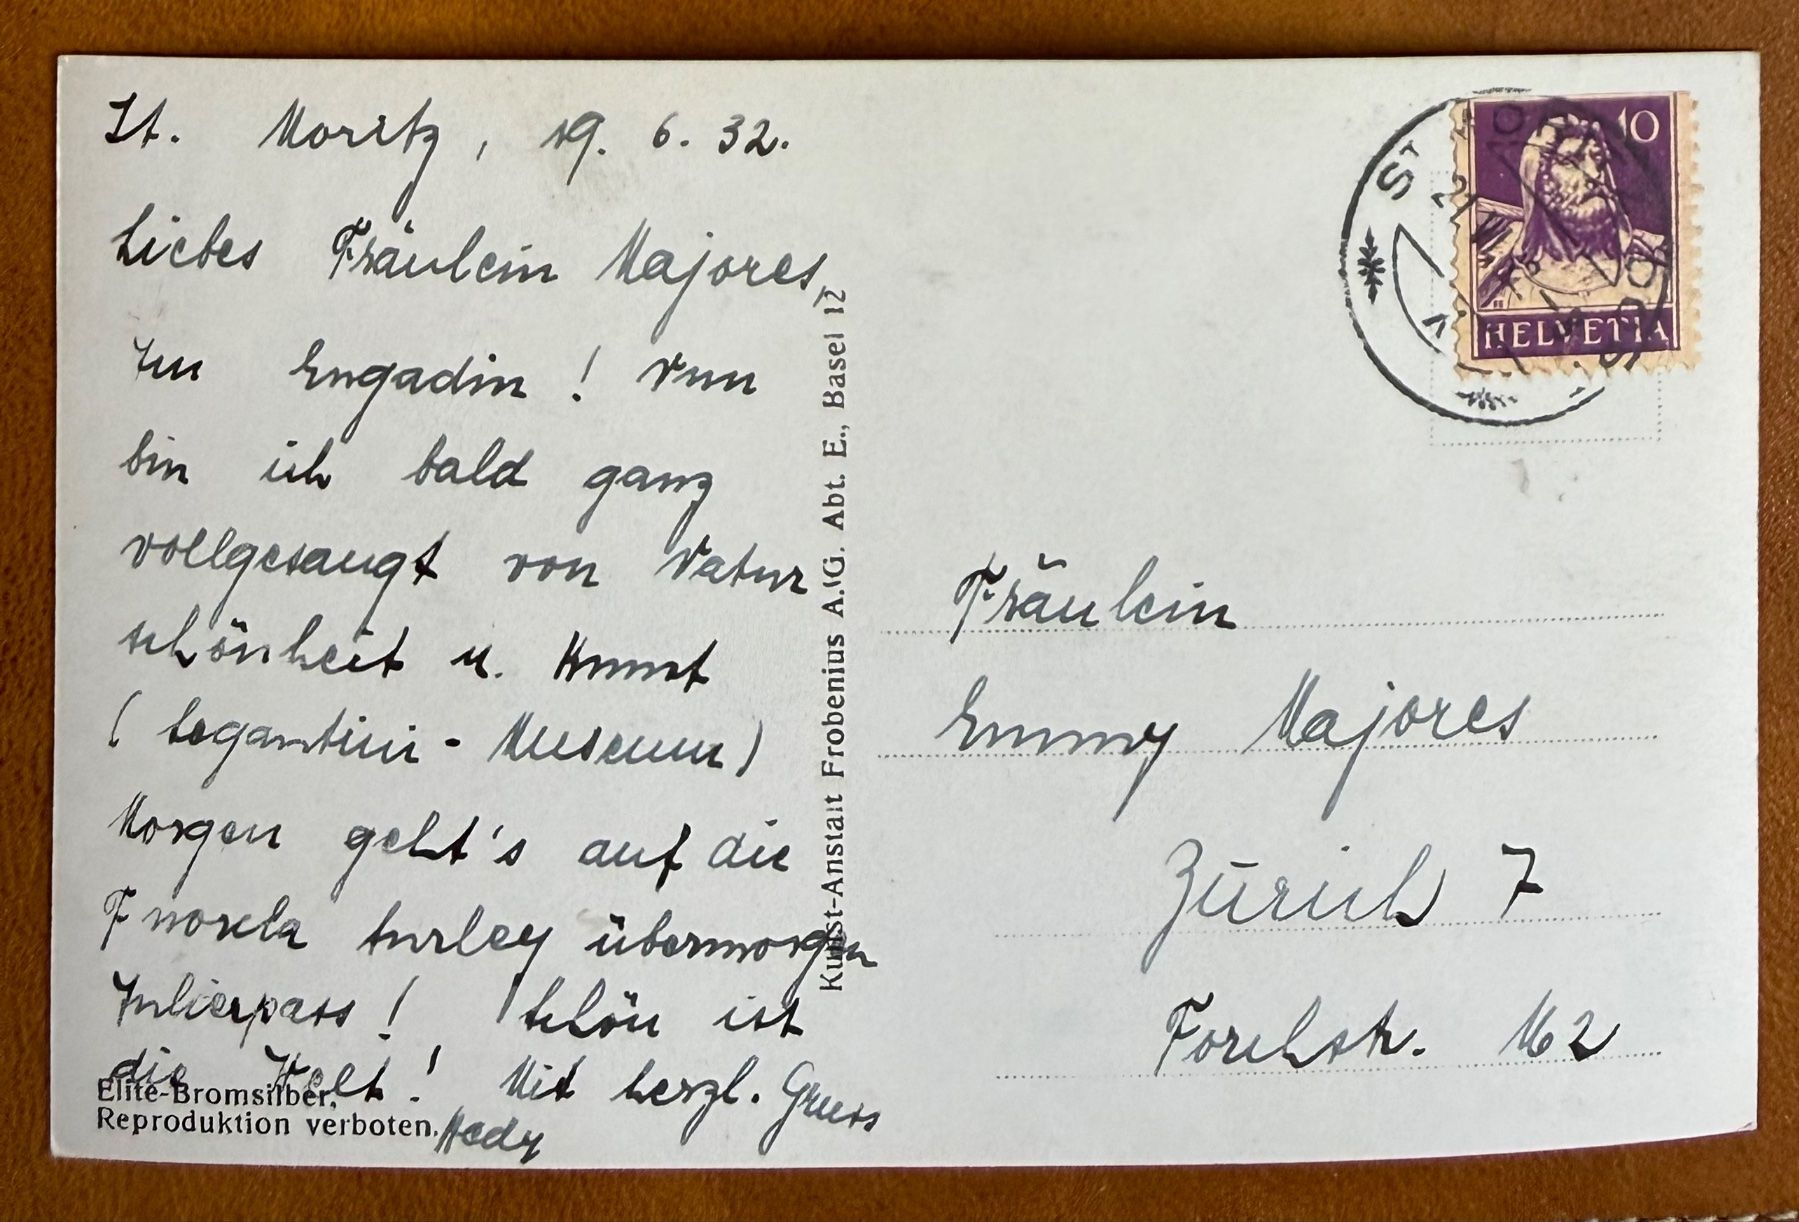 St. Moritz, 19. 6. 32.
Liebes Fräulein Majores,
Im Engadin! Nun
bin ich bald ganz
vollgesaugt von Natur
schönheit u. Kunst
(Segantini-Museum)
Morgen geht's auf die
Fuorcla Surley übermorgen
Julierpass! Schön ist
die Welt! Mit herzl. Gruss
Hedy
Elite-Bromsilber.
Reproduktion verboten.
Kunst-Anstalt Frobenius A.G. Abt. E., Basel 12
10
HELVETIA
ST
Fräulein
Emmy Majores
Zürich 7
Forchstr.